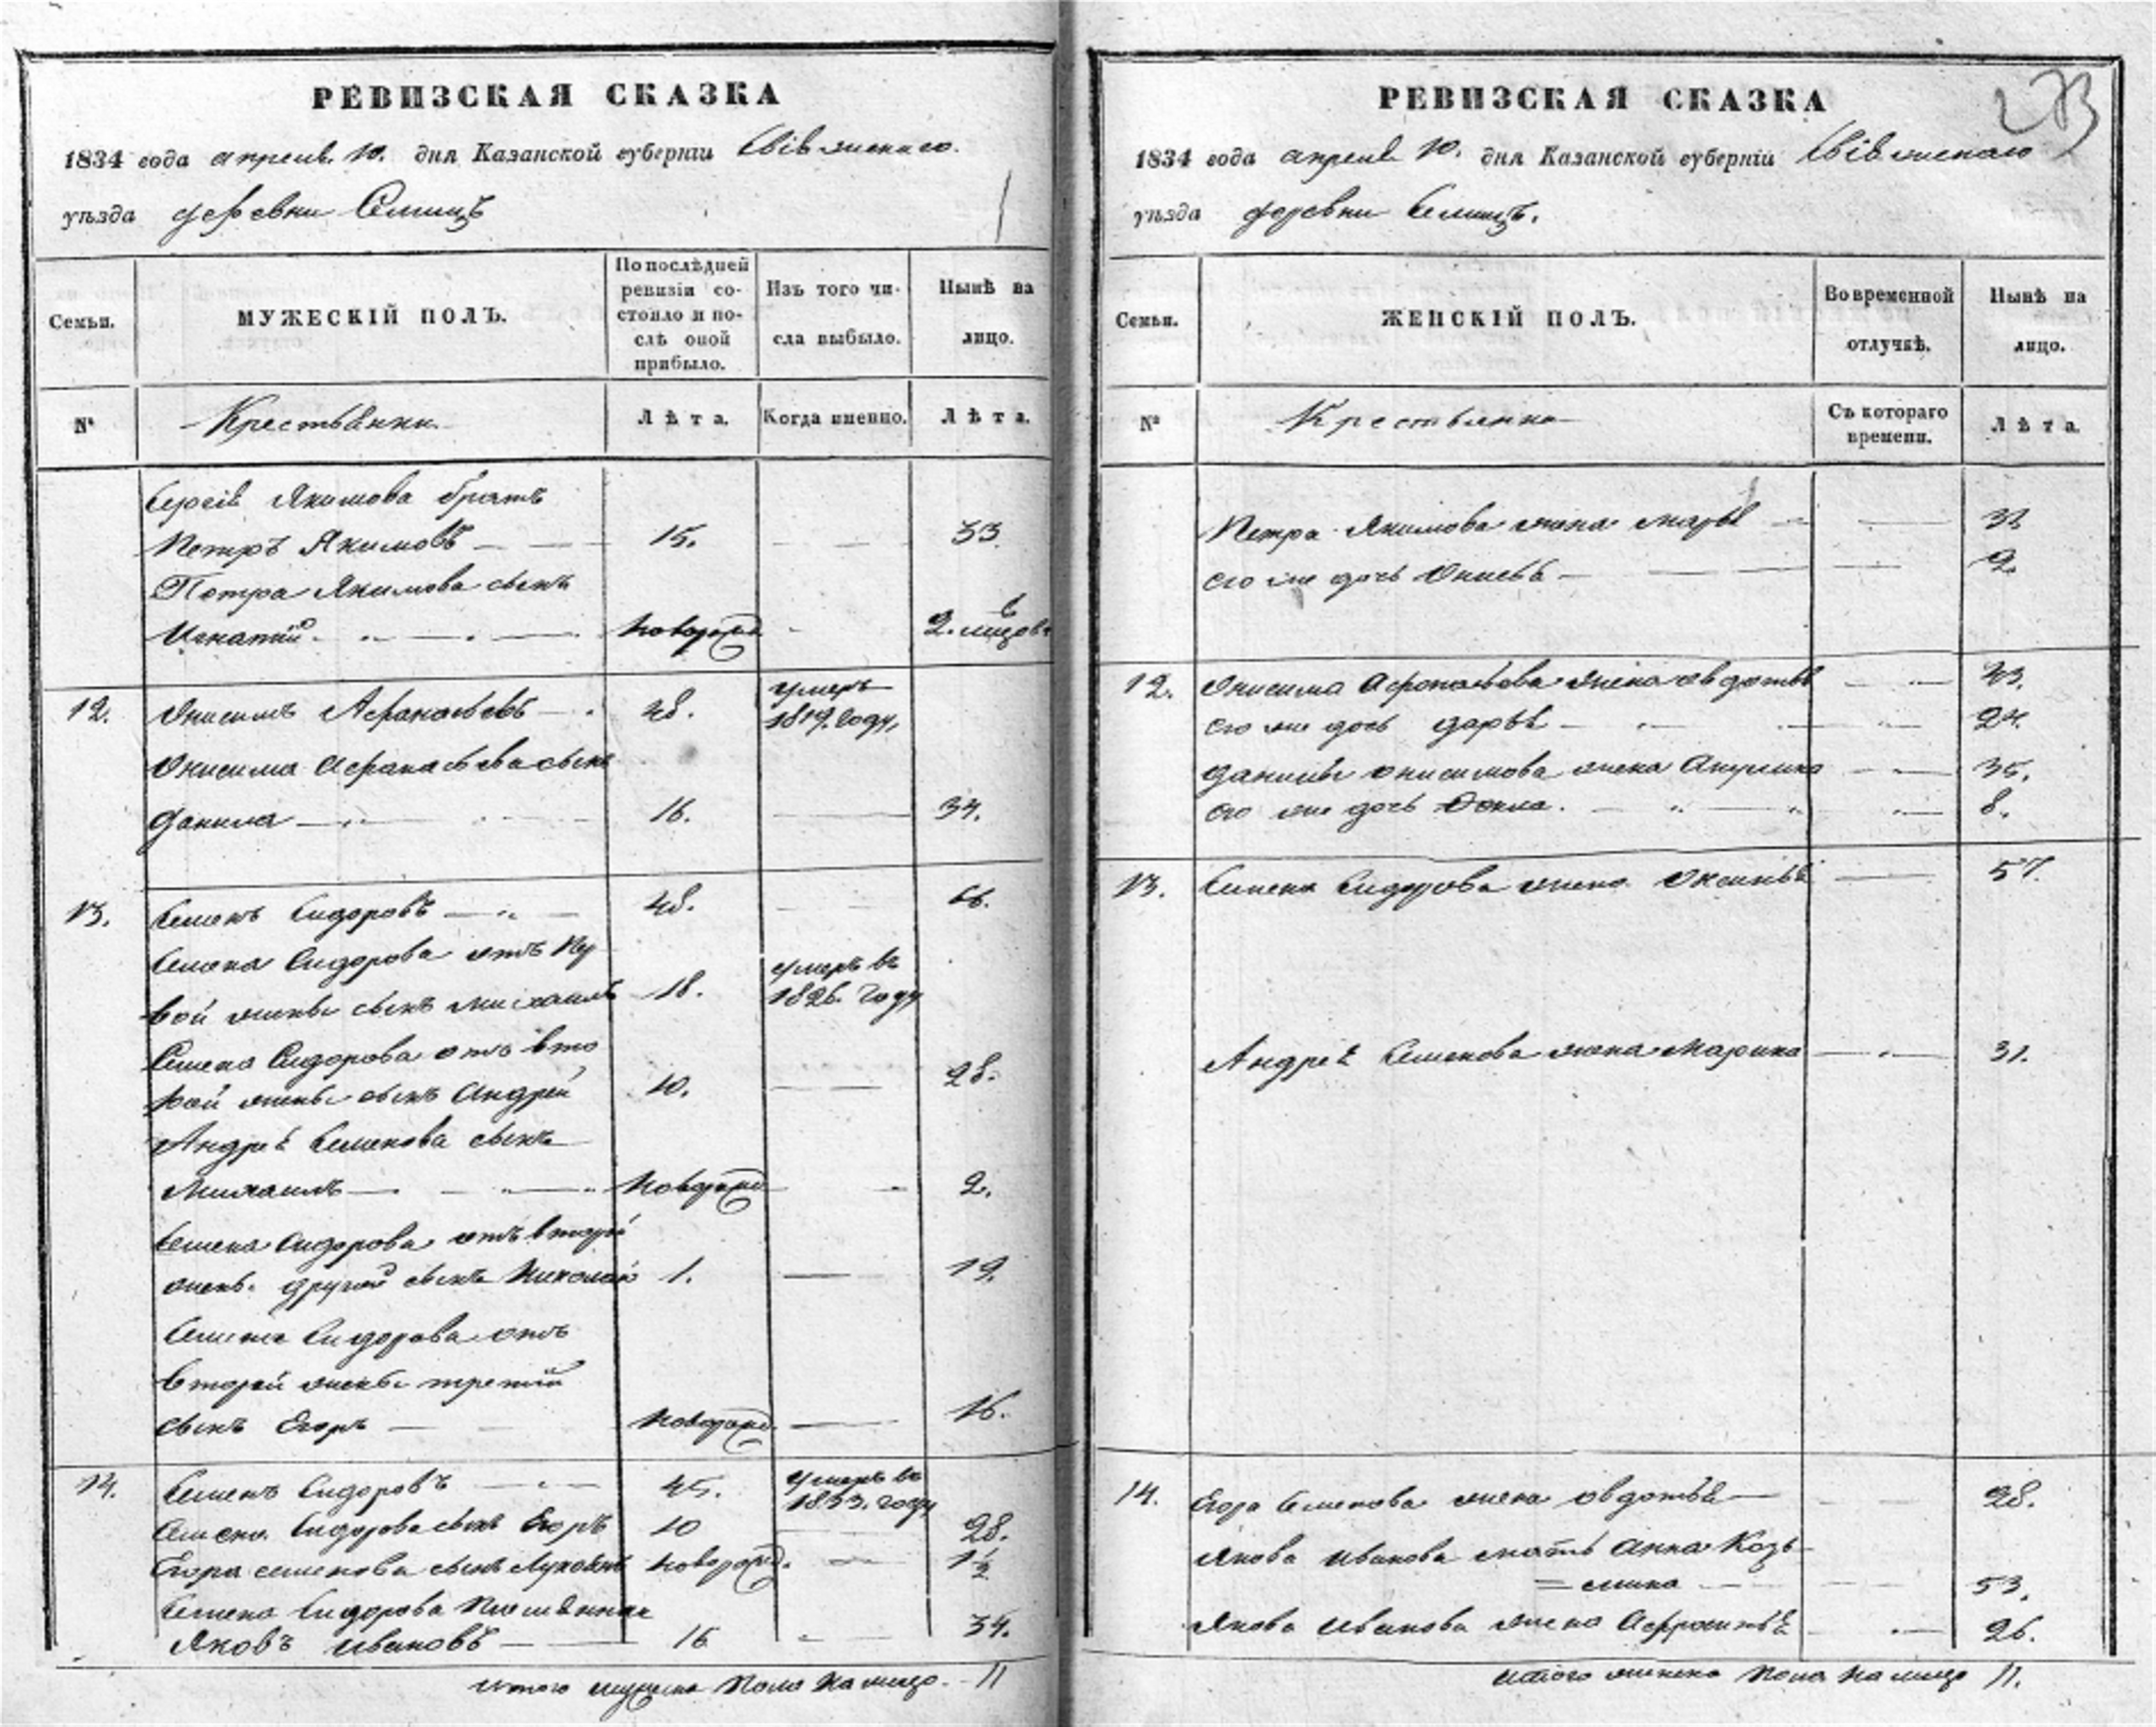 РЕВИЗСКАЯ СКАЗКА
1834 года апреля 10. дня Казанской губерніи Свіяжскаго.
уѣзда деревни
Семьи.
МУЖЕСКІЙ ПОЛЪ.
По послѣдней
ревизіи со-
стояло и по-
слѣ оной
прибыло.
Изъ того чи-
сла выбыло.
Нынѣ на
лицо.
№
Крестьянни
Лѣта.
Когда именно.
Лѣта.
Сергѣя Якимова братъ
Петръ Якимовъ 15. 33
Петра Якимова сынъ
Игнатий новорожд 2. месяцовъ
12. Онисимъ Афанасьевъ 48. умеръ
1819. году,
Онисима Афанасьева сынъ
Данила 16. 34.
13. Семенъ Сидоровъ 48. 66.
Семена Сидорова отъ пер
вой жены сынъ Михаилъ 18. умеръ въ
1826. году
Семена Сидорова отъ вто
рой жены сынъ Андрей 10. 28.
Андрея Семенова сынъ
Михаилъ новорожд 2.
Семена Сидорова отъ второй
жены другой сынъ Николай 1. 19.
Семена Сидорова отъ
второй жены третий
сынъ Егоръ новорожд. 16.
14. Семенъ Сидоровъ 45. умеръ въ
1833. году
Семена Сидорова сынъ Егоръ 10 28.
Егора Семенова сынъ новорожд. 1½
Семена Сидорова племянникъ
Яковъ Ивановъ 16 34.
итого мужска пола на лицо 11
РЕВИЗСКАЯ СКАЗКА
1834 года апреля 10. дня Казанской губерніи Свіяжскаго
уѣзда деревни
Семьи.
ЖЕНСКІЙ ПОЛЪ.
Во временной
отлучкѣ.
Нынѣ на
лицо.
№
Крестьянка
Съ котораго
времени.
Лѣта.
Петра Якимова жена Марья
его же дочь 2.
12. Онисима Афонасьева жена Овдотья 43.
его же дочь Дарья 24.
Данилы Онисимова жена Акулина 35.
его же дочь Фекла. 8.
13. Семена Сидорова жена Оксинья 57.
Андрея Семенова жена Марина 31.
14. Егора Семенова жена Овдотья 28.
Якова Иванова мать Анна Козь-
=мина 53.
Якова Иванова жена Афросинья 26.
итого женска пола на лицо 11.